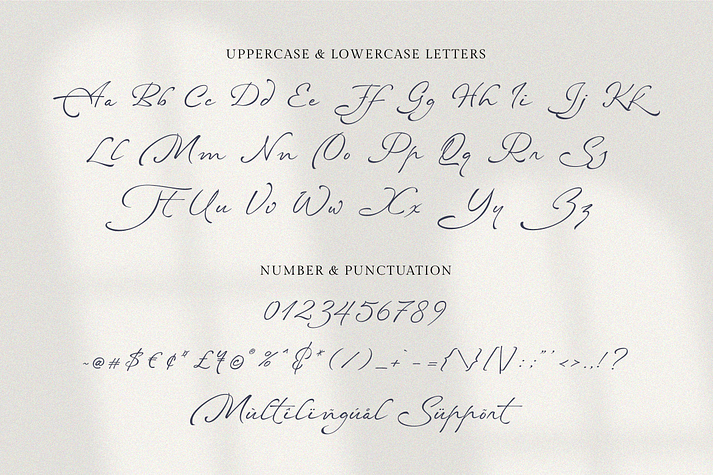 UPPERCASE & LOWERCASE LETTERS
Aa Bb Cc Dd Ee Ff Gg Hh Ii Jj Kk
Ll Mm Nn Oo Pp Qq Rr Ss
Tt Uu Vv Ww Xx Yy Zz
NUMBER & PUNCTUATION
0123456789
~@#$€¢"£¥©®%^&*(/)_+`-={\}[|\]:;"'<>.,!?
Mùltílïñgúâl Süppört